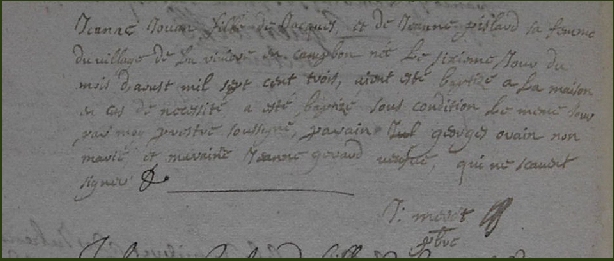 Jeanne Jouin fille de Jacques et de Jeanne pislard sa femme
du village de la en cambon née Le sixiesme Jour du
mois d'aoust mil sept cent trois, aient esté baptizé a La maison
en cas de nécessité a esté baptizé sous condition Le meme Jour
par moy prestre soussigné, parain georges ovain non
marié et maraine Jeanne govard qui ne scavent
signer
J: 
pbre